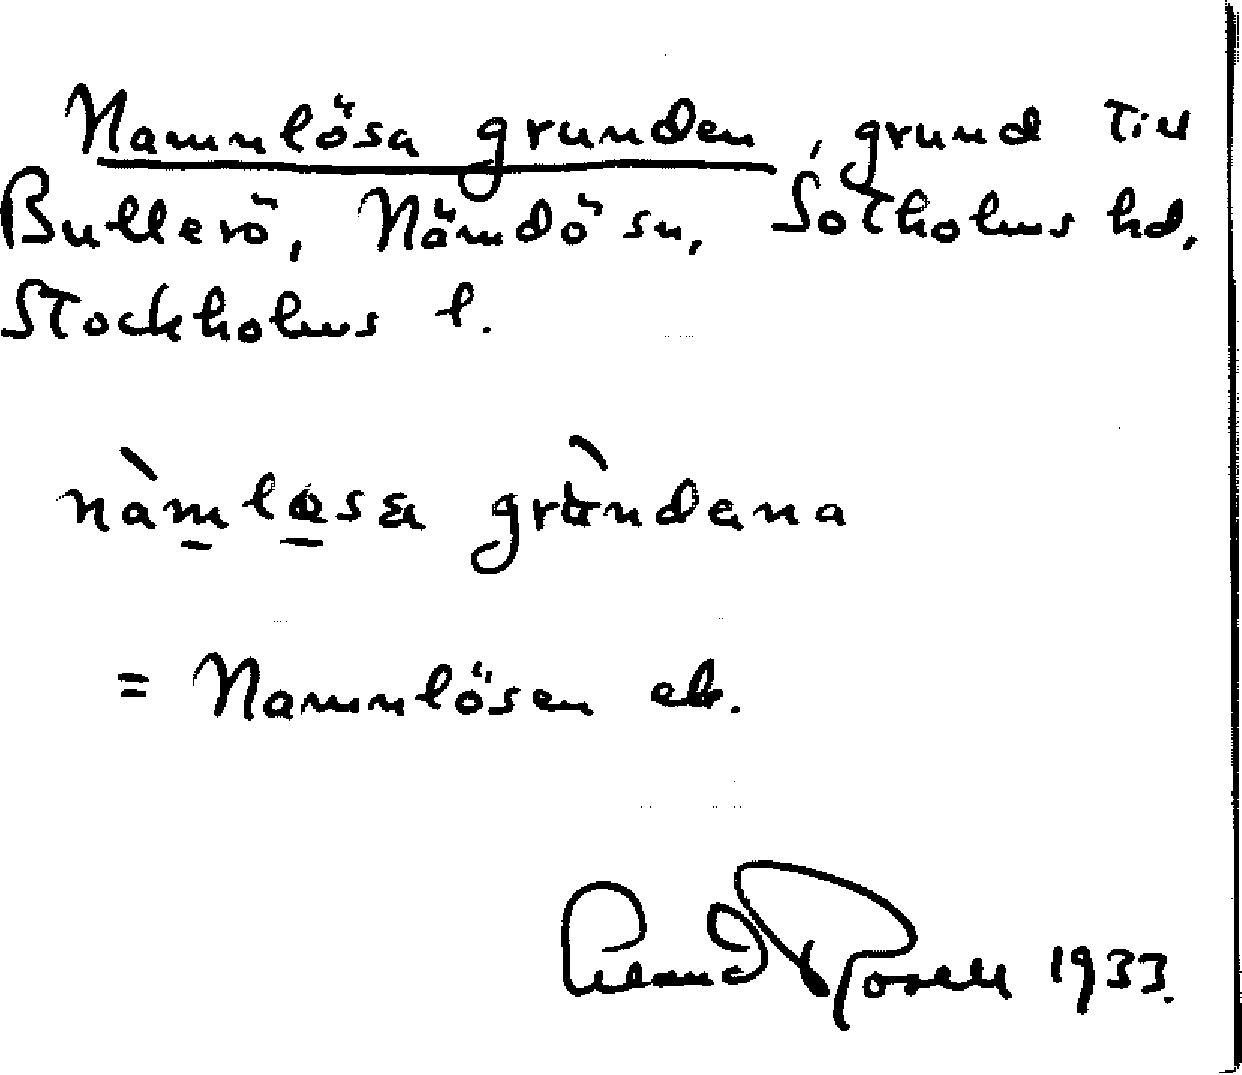 Namnlösa grunden, grund till
Bullerö, Nämdö sn, Sotholms hd,
Stockholms l.
nàmløsa grùndena
= Namnlösen eb.
Erland Rosell 1933.